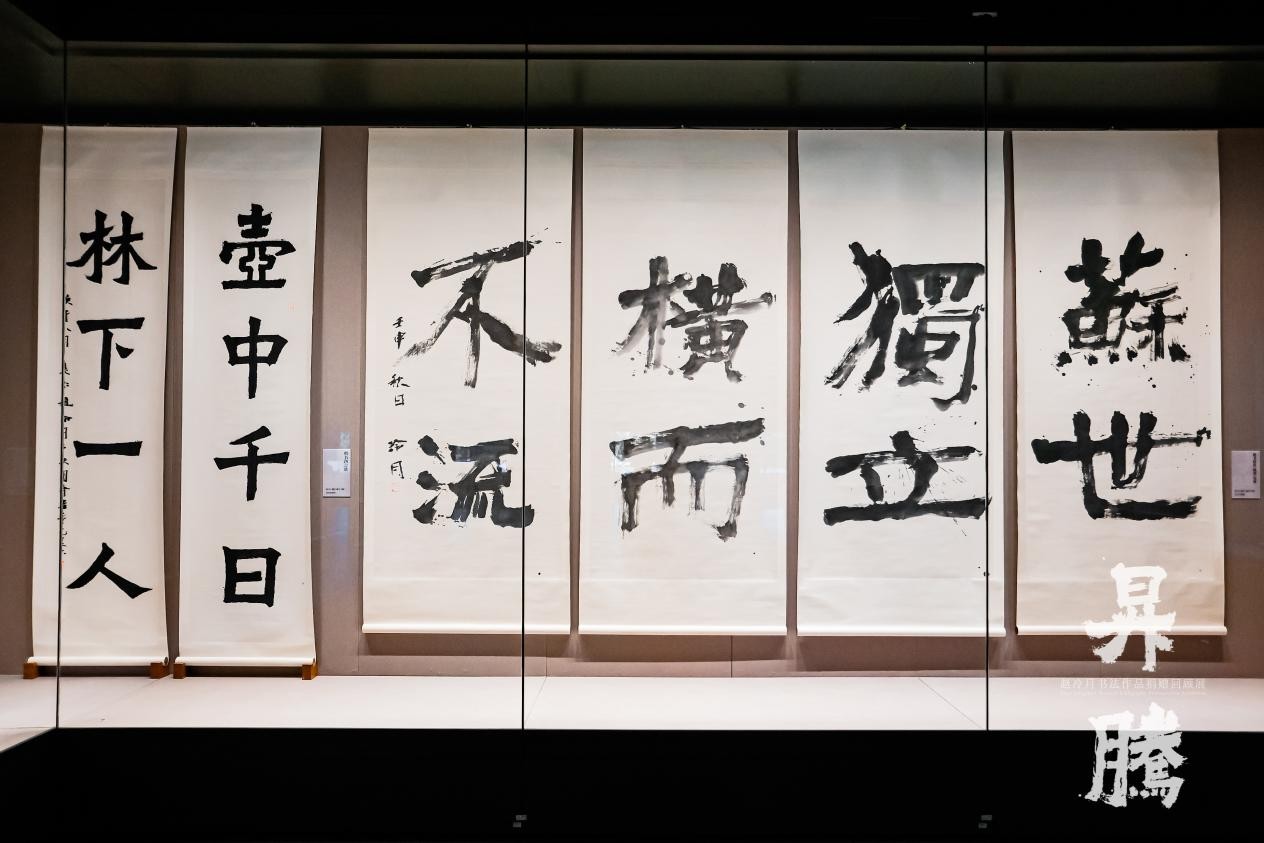 蘇世
獨立
橫而
不流
壬申 秋日 冷月
壺中千日
林下一人
昇騰
赵冷月书法作品捐赠回顾展